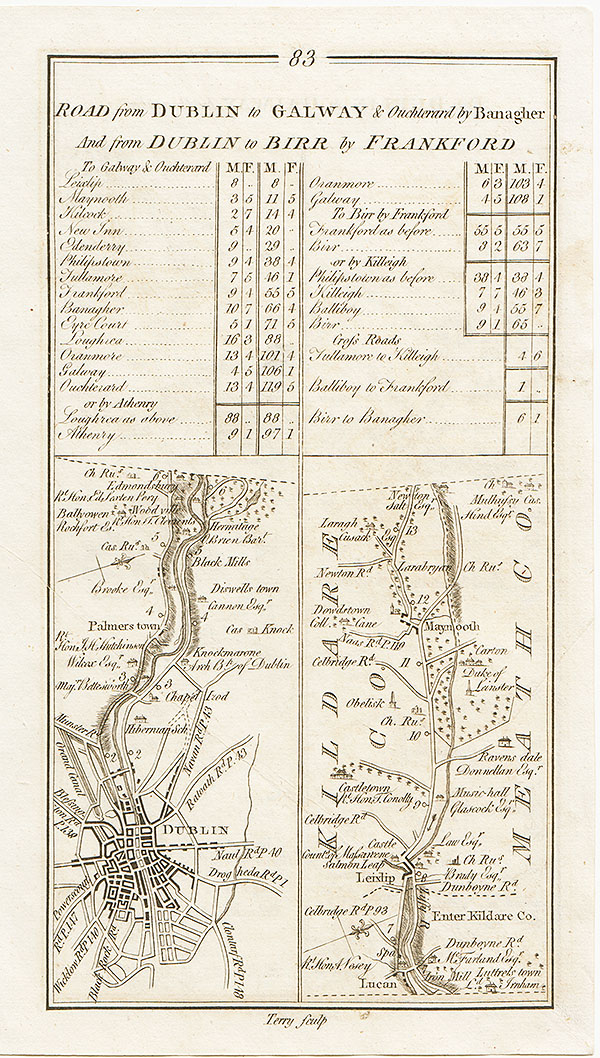 83
ROAD from DUBLIN to GALWAY & Ouchterard by Banagher
And from DUBLIN to BIRR by FRANKFORD
To Galway & Ouchterard M. F. M. F.
Leixlip 8 .. 8 ..
Maynooth 3 5 11 5
Kilcock 2 7 14 4
New Inn 5 4 20 ..
Edenderry 9 .. 29 ..
Philipstown 9 4 38 4
Tullamore 7 5 46 1
Frankford 9 4 55 5
Banagher 10 7 66 4
Eyre Court 5 1 71 5
Loughrea 16 3 88 ..
Oranmore 13 4 101 4
Galway 4 5 106 1
Ouchterard 13 4 119 5
or by Athenry
Loughrea as above 88 .. 88 ..
Athenry 9 1 97 1
M F M. F.
Oranmore 6 3 103 4
Galway 4 5 108 1
To Birr by Frankford
Frankford as before 55 5 55 5
Birr 8 2 63 7
or by Killeigh
Philipstown as before 38 4 38 4
Killeigh 7 7 46 3
Balliboy 9 4 55 7
Birr 9 1 65 ..
Cross Roads
Tullamore to Killeigh 4 6
Balliboy to Frankford 1 ..
Birr to Banagher 6 1
Ch Ru.s
6
Edmondsbury
Rt. Hon. S. Sexten Pery
Ballyowen
Woodvill
Rochfort Es.
Rt. Hon. T. Clements
Hermitage
O'Brien Bart.
5
Cas Ru.s
5
Black Mills
Brooke Esqr.
Diswells town
Cannon Esqr.
4
4
Palmers town
Cas Knock
Rt. Hon. J. H. Hutchinson
Knockmarone
Wilcox Esqr.
Arch Bp. of Dublin
3
Maj. Bettesworth
3
Chapel Izod
Hibernian Sch.
Munster R
Navan Rd. P. 43
Grand Canal
2
2
Ratoath Rd. P. 43
DUBLIN
Naul Rd. P 40
Drogheda Rd. P 1
Powerscourt
Rd. P. 117
Wicklow Rd. P 140
Black Rock Rd.
Clontarf Rd. P 148
Ch
Newton
Salt Esqr.
Mulhusey Cas.
Hind Esqr.
13
Laragh
Cusack Esq
Newton Rd.
Larabryan
Ch Ru.s
12
Dowdstown
Coll. Lane
Maynooth
Naas Rd. P. 119
Carton
Celbridge Rd.
11
Duke of
Leinster
Obelisk
Ch. Ru.s
10
Ravens dale
Donnellan Esqr.
KILDARE CO
MEATH CO
Castletown
Rt. Hon. T. Conolly
9
Music-hall
Glascock Esqr.
Celbridge Rd.
Castle
Law Esqr.
Countss. of Massareene
Salmon Leap
Ch Ru.s
Leixlip
8
Brady Esqr.
Dunboyne Rd
Liffy R
Celbridge Rd. P 93
Enter Kildare Co.
7
Dunboyne Rd
Spa
McFarland Esqr.
Rt. Hon. A. Vesey
Iron Mill
Luttrels town
Lucan
Ld. Irnham
Terry sculp